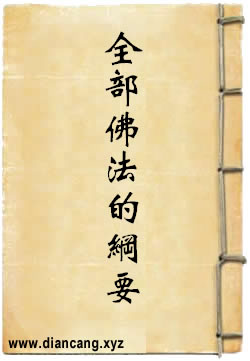 全部佛法的綱要
www.diancang.xyz